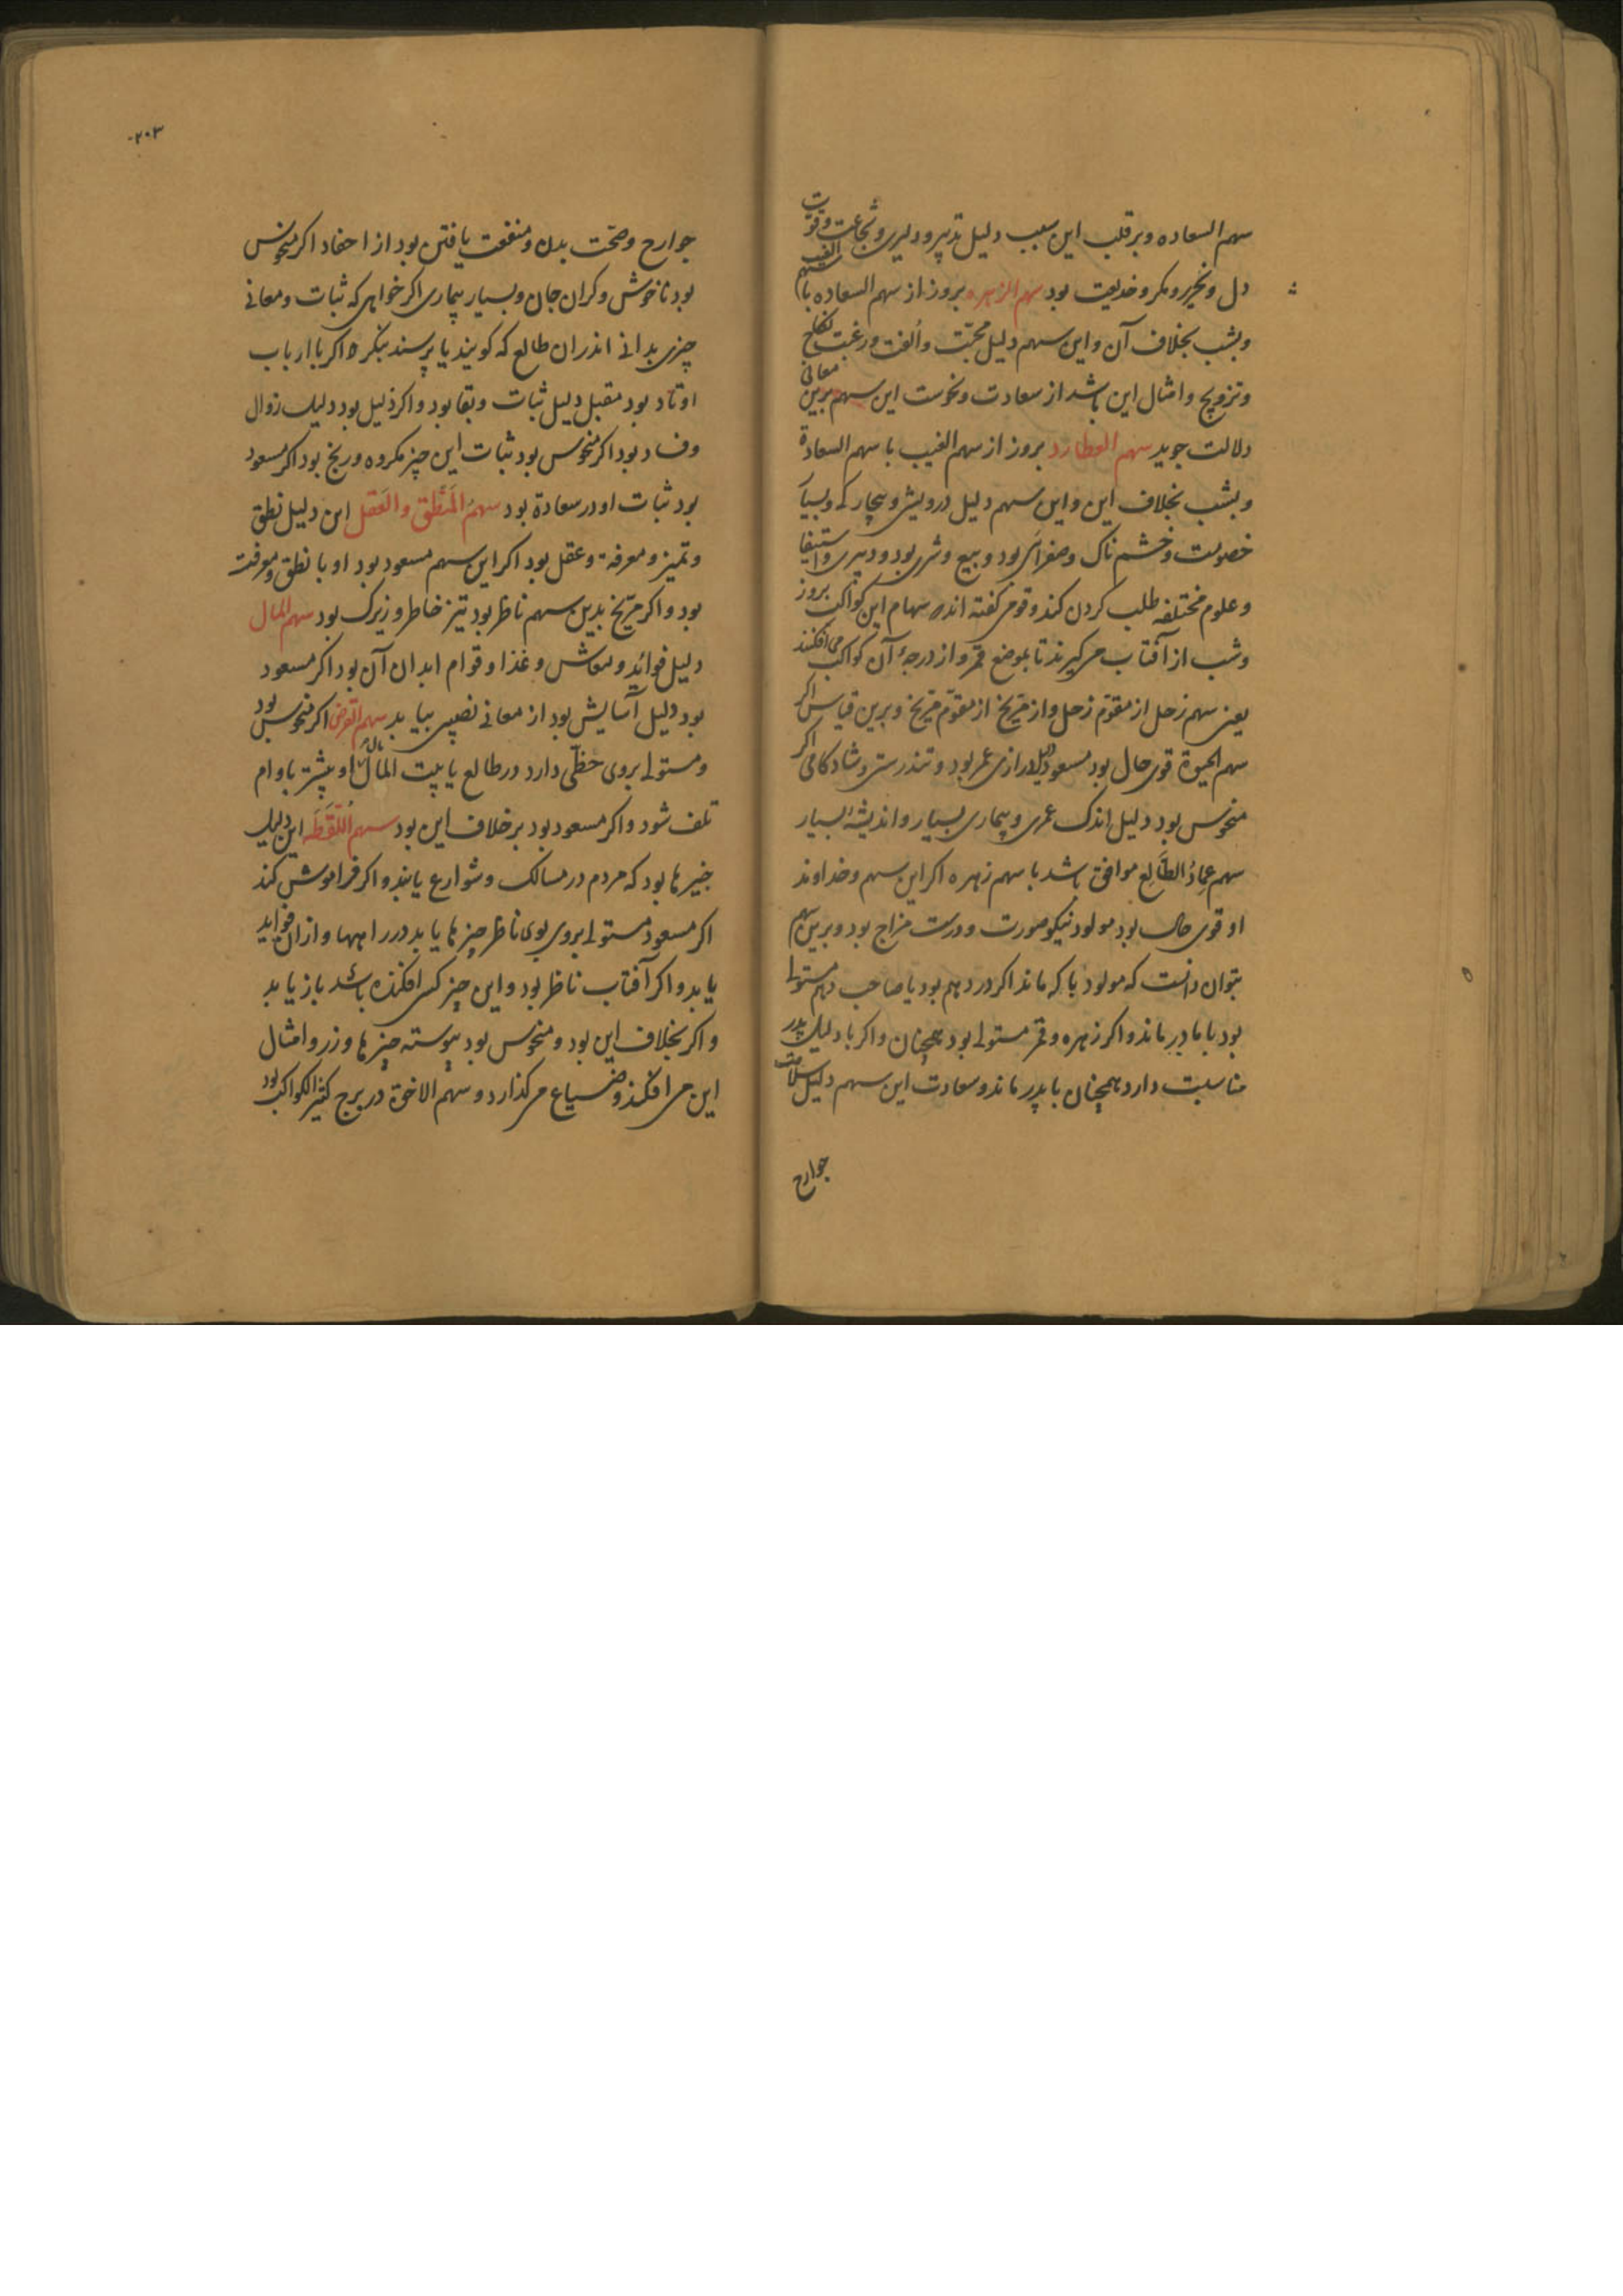 سهم السعاده وبر قلب این سبب دلیل تدبیر و دلیری و شجاعت و قوت
دل و مکر و خدیعت بود سهم الزهره بروز از سهم السعاده با سهم الغیب
و بشب بخلاف آن و این سهم دلیل محبّت و اُلفت و رغبت نکاح
و تزویج و امثال این باشد از سعادت و نحوست این سهم برین معانی
دلالت جوید سهم العطارد بروز از سهم الغیب با سهم السعادة
و بشب بخلاف این و این سهم دلیل درویشی و بیچارکه و بسیار
خصومت و خشم ناک و صفرای بود و بیع و شری بود و دبیری و استیفا
و علوم مختلفه طلب کردن کند و قومی کفته اند سهام این کواکب بروز
و شب از آفتاب می کیرند تا بموضع قمر و از درجهٔ آن کواکب می افکنند
یعنی سهم زحل از مقوّم زحل و از مرّیخ از مقوّم مرّیخ و برین قیاس اکر
سهم الحیوة قوی حال بود مسعود دلیل درازی عمر بود و تندرستی و شادکامی اکر
منحوس بود دلیل اندک عمری و بیماری بسیار و اندیشهٔ بسیار
سهم عِمادُ الطَالِع موافق باشد با سهم زهره اکر این سهم و خداوند
او قوی حال بود مولود نیکو صورت و درست مزاج بود و برین سهم
بتوان دانست که مولود با که ماند اکر در دهم بود یا صاحب دهم مستولی
بود با مادر ماند و اکر زهره و قمر مستولی بود همچنان و اکر با دلیل پدر
مناسبت دارد همچنان با پدر ماند و سعادت این سهم دلیل سلامت
جوارح
۲۰۳
جوارح و صحّت بدن و منفعت یافتن بود از احفاد اکر منحوس
بود ناخوش و کران جان و بسیار بیماری اکر خواهی که ثبات و معانی
چیزی بدانی اندران طالع که کویند یا پرسند بنکر اکر با ارباب
اوتاد بود مقبل دلیل ثبات و بقا بود و اکر ذلیل بود دلیل زوال
و فساد بود اکر منحوس بود ثبات این چیز مکروه و رنج بود اکر مسعود
بود ثبات او در سعادة بود سهمُ المَنَطق والعَقل این دلیل نطق
و تمیز و معرفة و عقل بود اکر این سهم مسعود بود او با نطق و معرفت
بود و اکر مرّیخ بدین سهم ناظر بود تیز خاطر و زیرک بود سهم المال
دلیل فوائد و معاش و غذا و قوام ابدان آن بود اکر مسعود
بود دلیل آسایش بود از معانی نصیبی بیابد سهم القرض اکر منحوس بود
و مستولی بروی حظّی دارد در طالع یا بیت المال مال او بیشتر باوام
تلف شود و اکر مسعود بود بر خلاف این بود سهم اللُّقَطَه این دلیل
چیزها بود که مردم در مسالک و شوارع یابند و اکر فراموش کند
اکر مسعود مستولی بروی بوی ناظر چیزها یابد در راهها و از ان فواید
یابد و اکر آفتاب ناظر بود و این چیز کسی افکنده باشد باز یابد
و اکر بخلاف این بود و منحوس بود پیوسته چیزها و زر و امثال
این می افکند و ضیاع می کذارد و سهم الاخوة در برج کثیر الکواکب بود